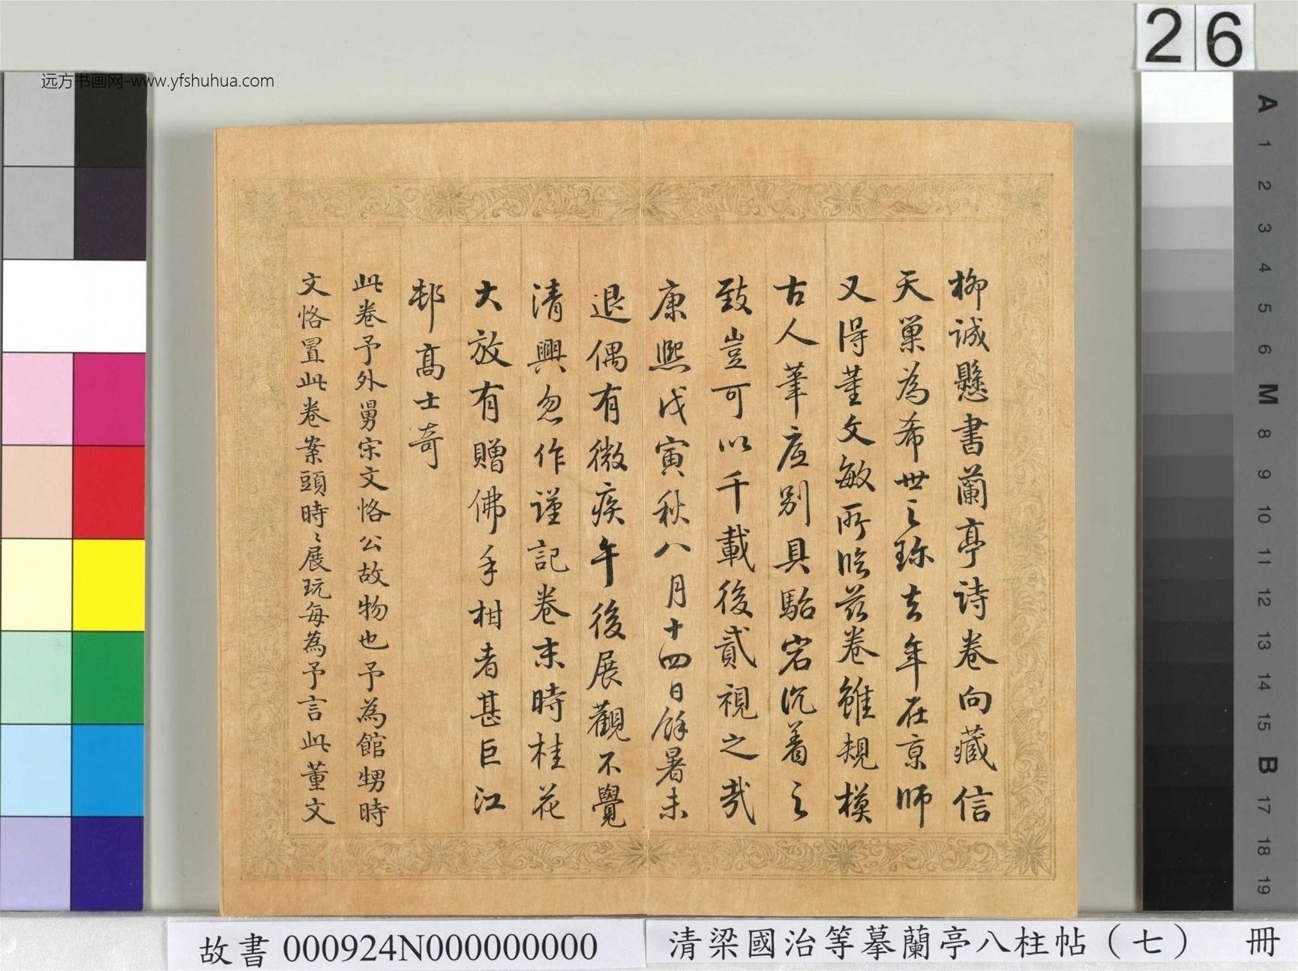 26
远方书画网-www.yfshuhua.com
柳誠懸書蘭亭诗卷向藏信
天巢為希世之珎去年在京师
又得董文敏所临兹卷雖規模
古人筆底别具駘宕沉着之
致豈可以千載後貳視之哉
康熙戊寅秋八月十四日餘暑未
退偶有微疾午後展觀不覺
清興忽作謹記卷末時桂花
大放有贈佛手柑者甚巨江
邨高士奇
此卷予外舅宋文恪公故物也予為館甥時
文恪置此卷案頭時〻展玩每為予言此董文
A
1
2
3
4
5
6
M
8
9
10
11
12
13
14
15
B
17
18
19
故書 000924N000000000
清梁國治等摹蘭亭八柱帖（七） 冊